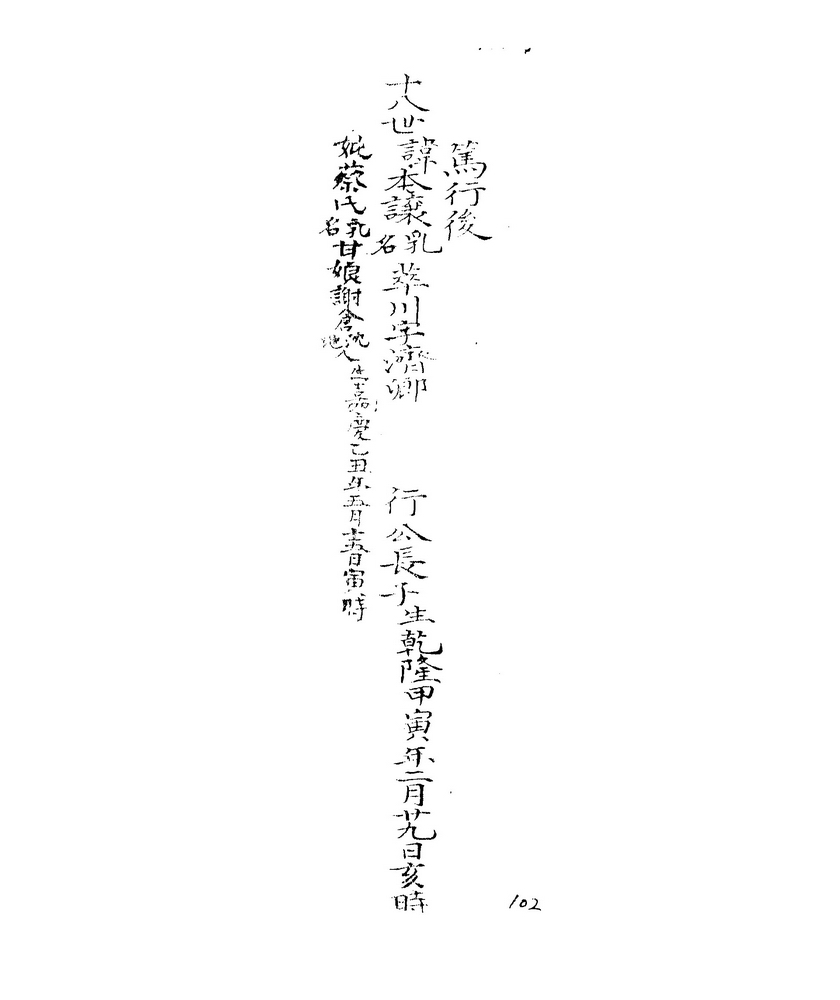 篤行後
十八世諱本讓乳名萃川字濟卿 行公長子生乾隆甲寅年二月廿九日亥時
妣蔡氏乳名甘娘謝倉 地人生嘉慶乙丑年五月十五日寅時
102